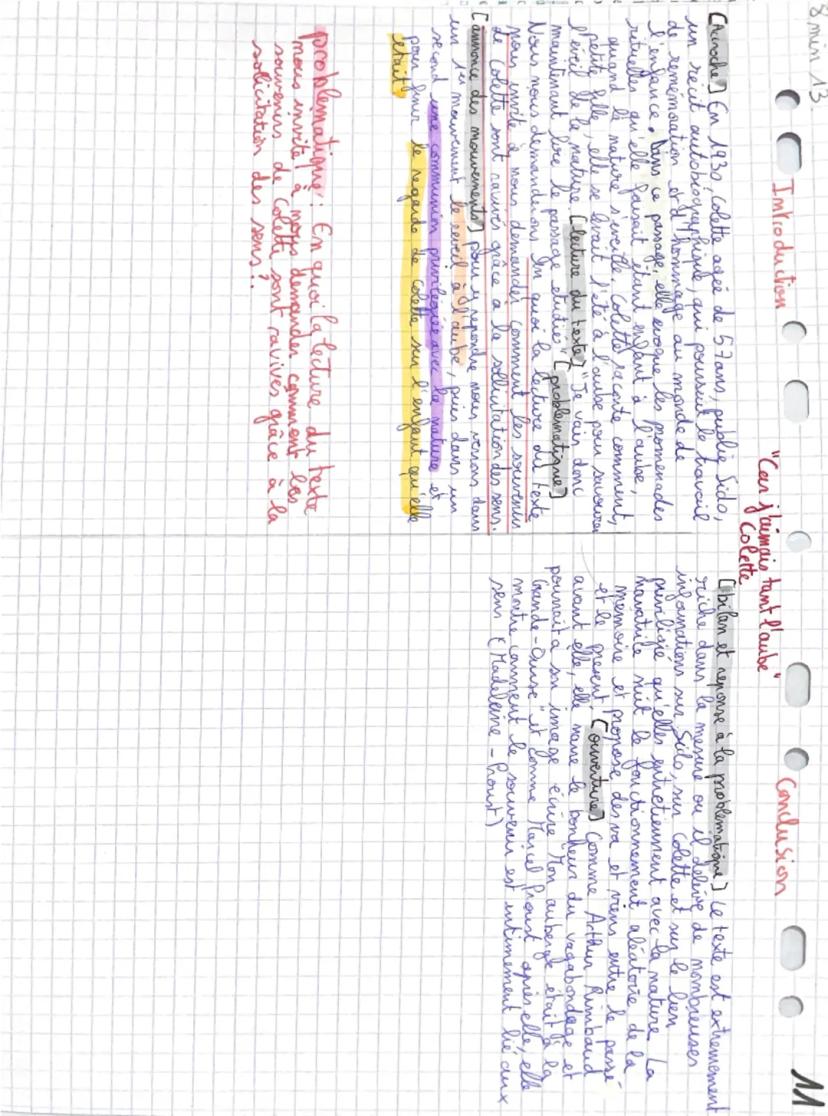 8 min 13
11
"Car j'aimais tant l'aube"
Colette
Introduction
[Accroche] En 1930, Colette agée de 57 ans, publie Sido,
un récit autobiographique, qui poursuit le travail
de remémoration et d'hommage au monde de
l'enfance. Dans ce passage, elle évoque les promenades
rituelles qu'elle faisait étant enfant à l'aube,
quand la nature s'éveille. Colette raconte comment,
petite fille, elle se levait l'été à l'aube pour savourer
l'éveil de la nature. [lecture du texte] "Je vais donc
maintenant lire le passage étudié" [problématique]
Nous nous demanderons En quoi la lecture du texte
nous invite à nous demander comment les souvenirs
de Colette sont ravivés grâce à la sollicitation des sens.
[annonce des mouvements] pour y repondre nous verrons dans
un 1er mouvement le reveil à l'aube, puis dans un
second une communion privilegiée avec la nature et
pour finir le regarde de Colette sur l'enfant qu'elle
était.
problématique: En quoi la lecture du texte
nous invite à nous demander comment les
souvenirs de Colette sont ravivés grâce à la
solicitation des sens?
Conclusion
[bilan et reponse à la problématique] Le texte est extremement
riche dans la mesure ou il délivre de nombreuses
informations sur Sido, sur Colette et sur le lien
privilégié qu'elles entretiennent avec la nature. La
narratrice suit le fonctionnement aléatoire de la
mémoire et propose des va et viens entre le passé
et le présent. [ouverture] Comme Arthur Rimbaud
avant elle, elle narre le bonheur du vagabondage et
pourrait a son image écrire "Mon auberge était à la
Grande-Ourse" et comme Marcel Proust après elle, elle
montre comment le souvenir est intimement lié aux
sens (Madeleine - Proust)